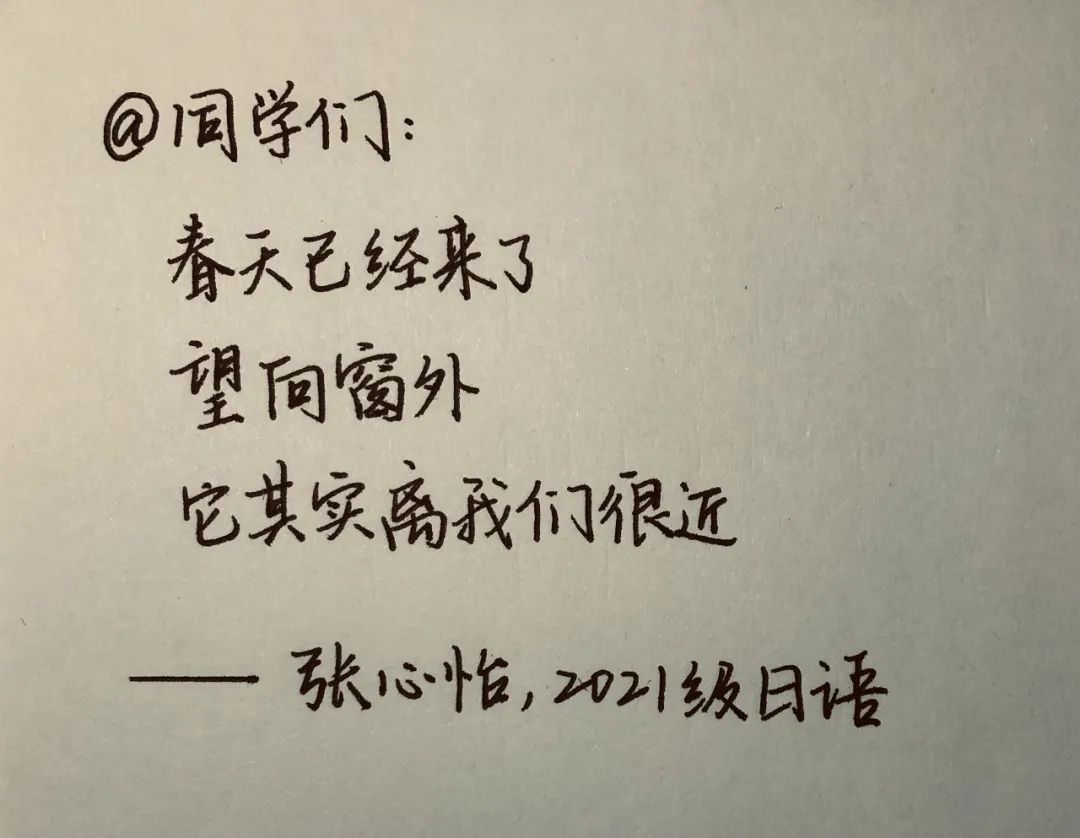 @同学们：
春天已经来了
望向窗外
它其实离我们很近
—— 张心怡，2021级日语